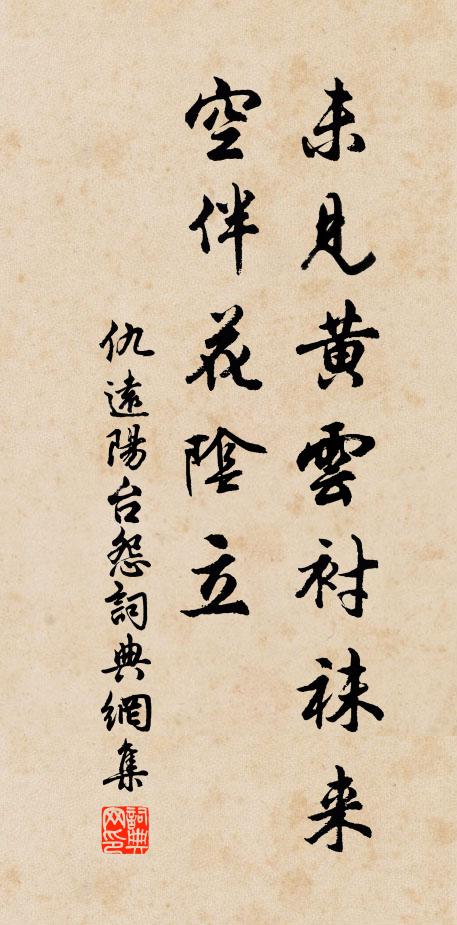 未見黄雲衬袜来
空伴花陰立
仇遠陽台怨詞典網集
詞典网印